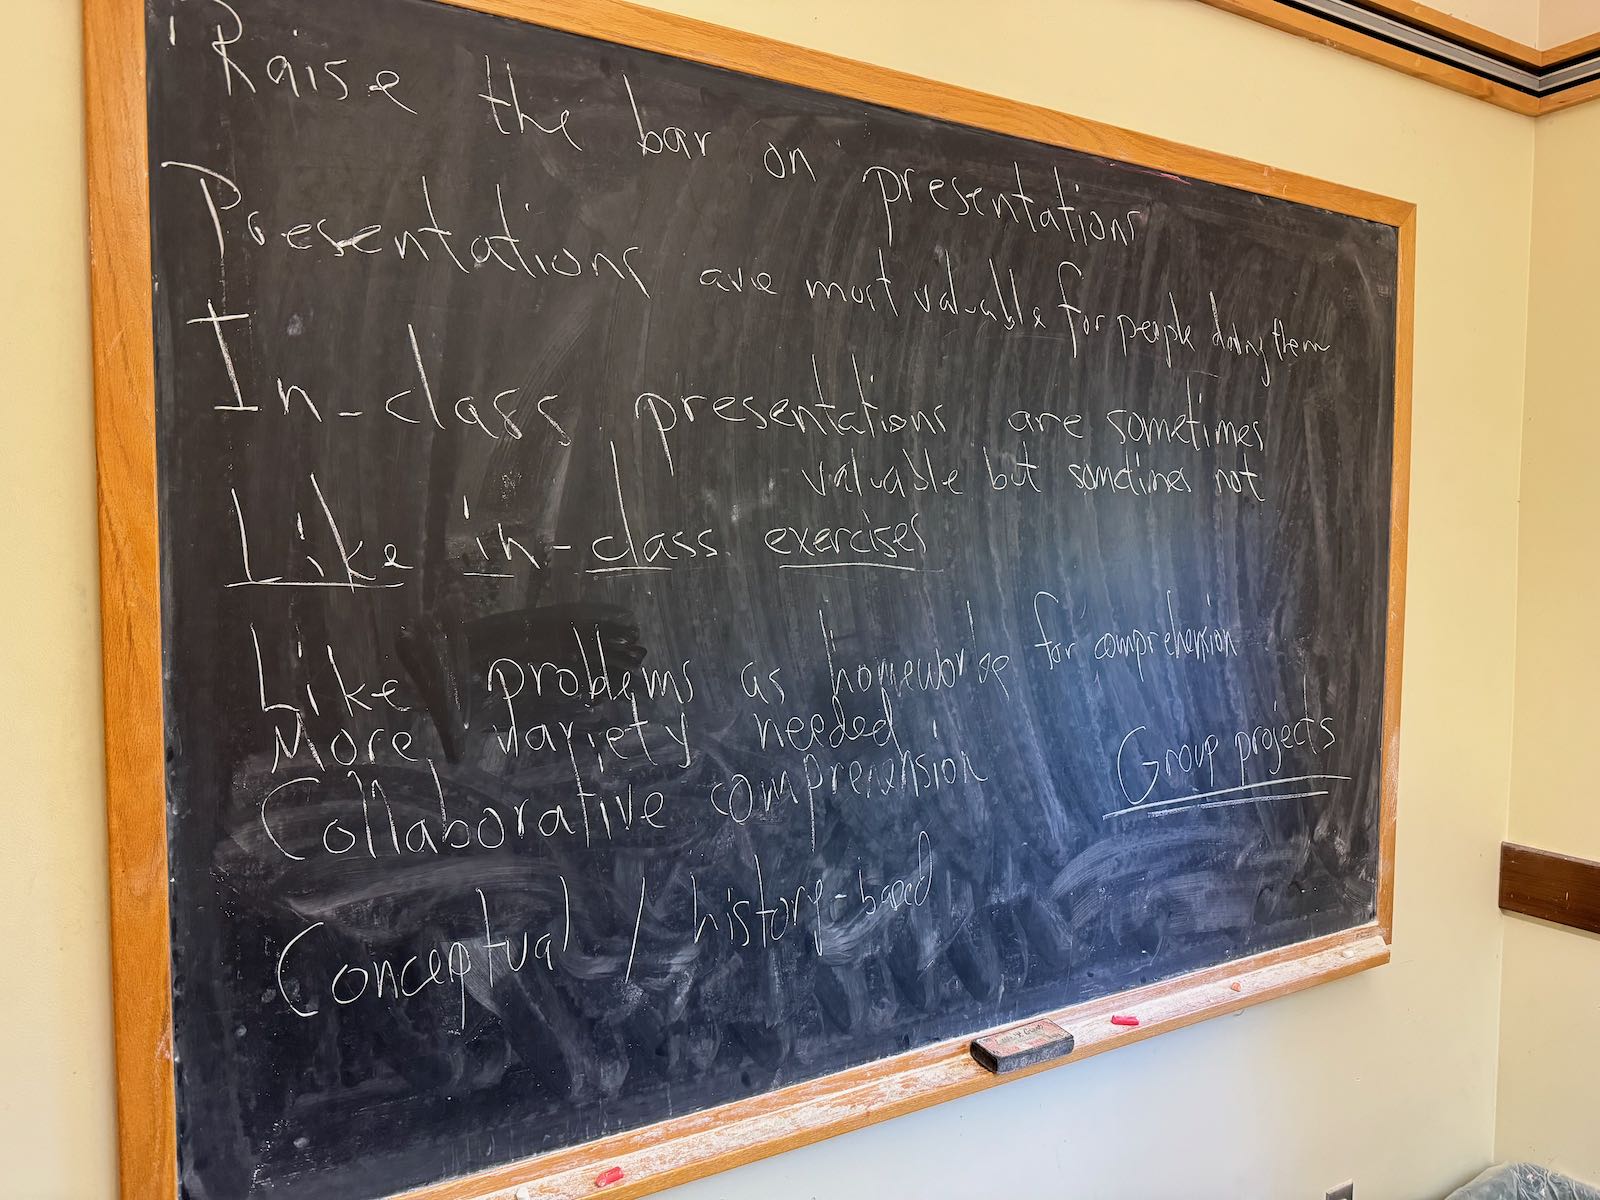 Raise the bar on presentations
Presentations are most valuable for people doing them
In-class presentations are sometimes
valuable but sometimes not
Like in-class exercises
Like problems as homework for comprehension
More variety needed
Collaborative comprehension
Group projects
Conceptual / history-based